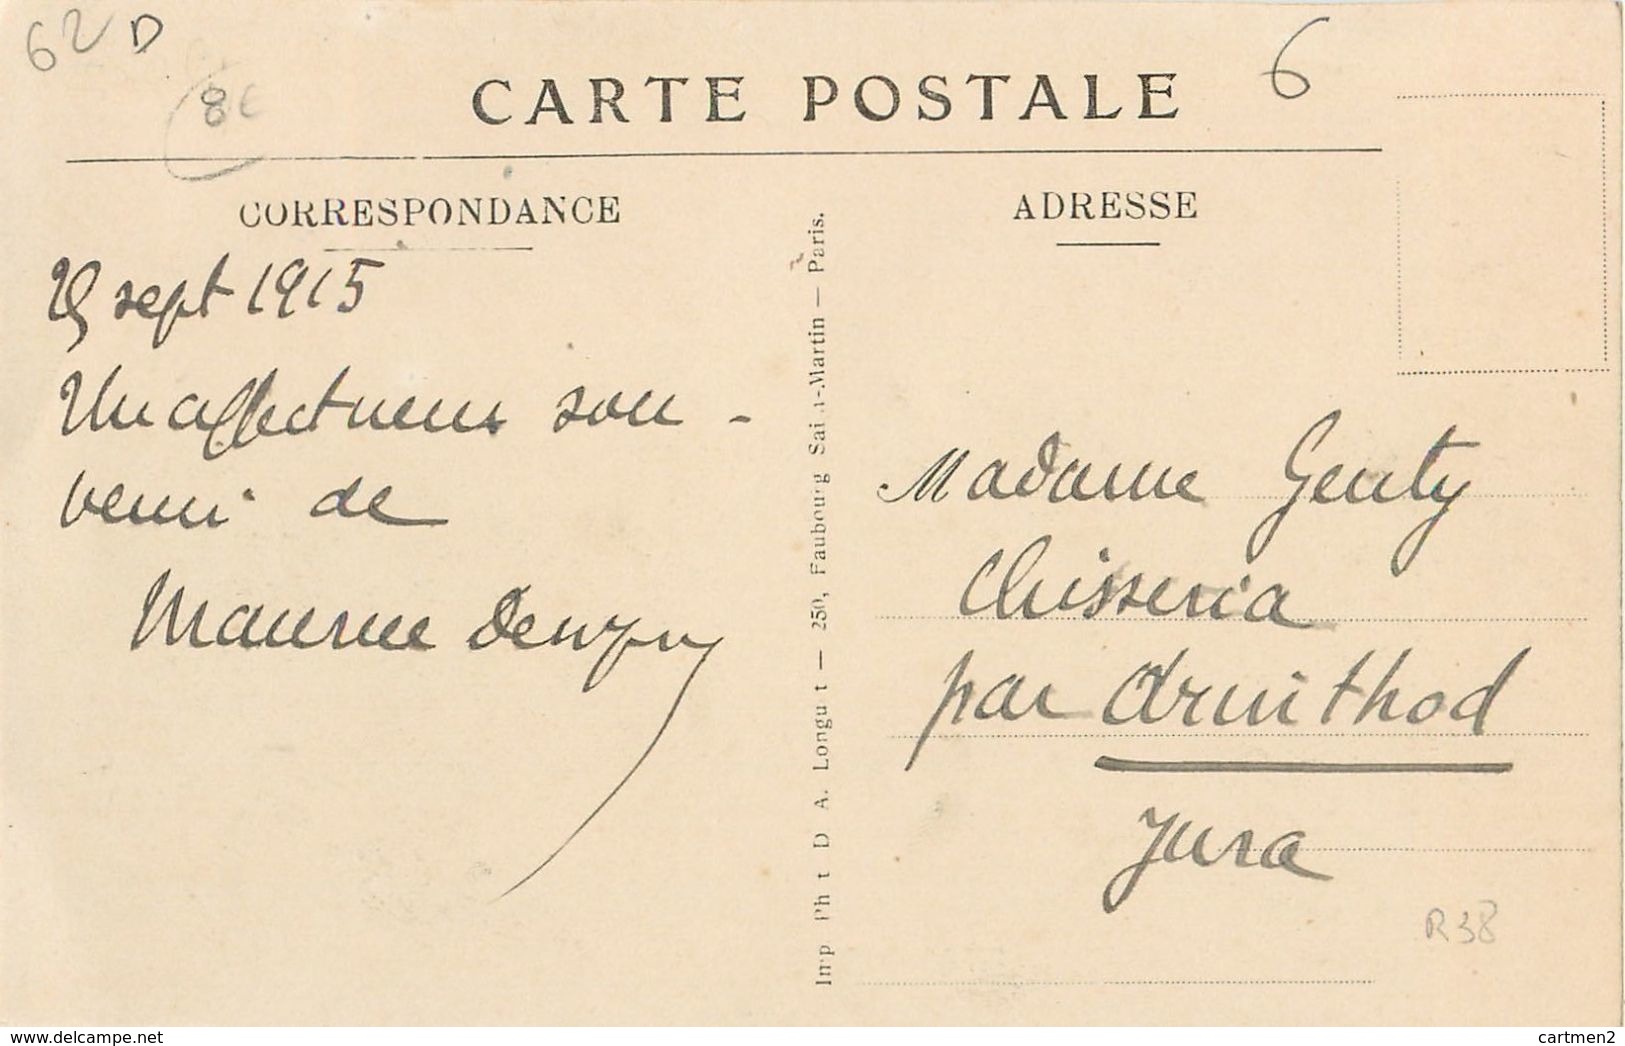 62 D
8€
6
CARTE POSTALE
CORRESPONDANCE
29 sept 1915
Un affectueux sou -
venir de
Maurice
ADRESSE
Madame Genty
Chisseria
par Arnithod
Jura
R38
Imp Ph t D A. Longu t — 250, Faubourg Sai n-Martin — Paris.
cartmen2
www.delcampe.net